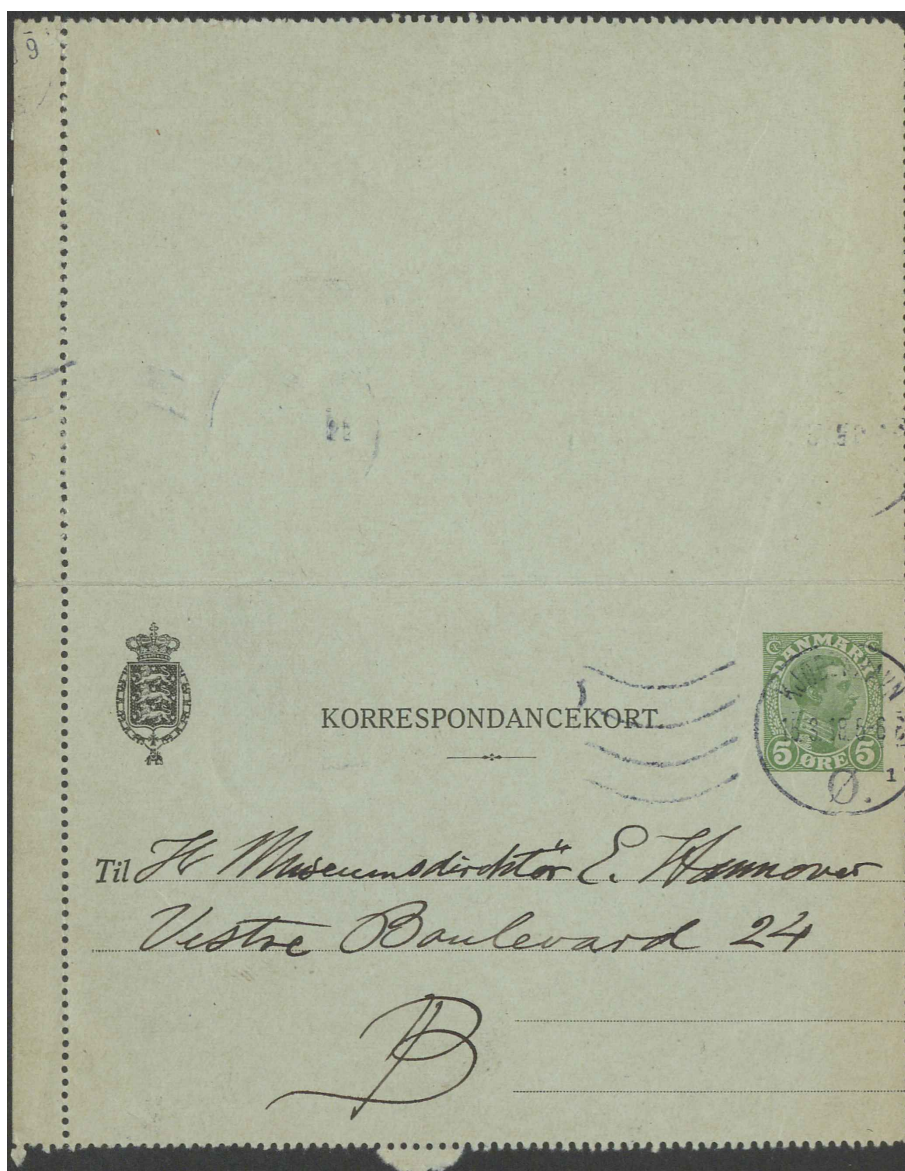 KORRESPONDANCEKORT.
DANMARK
5 ØRE 5
KJØBENHAVN
Ø.
1
Til H Museumsdirektör E. Hannover
Vestre Boulevard 24
B